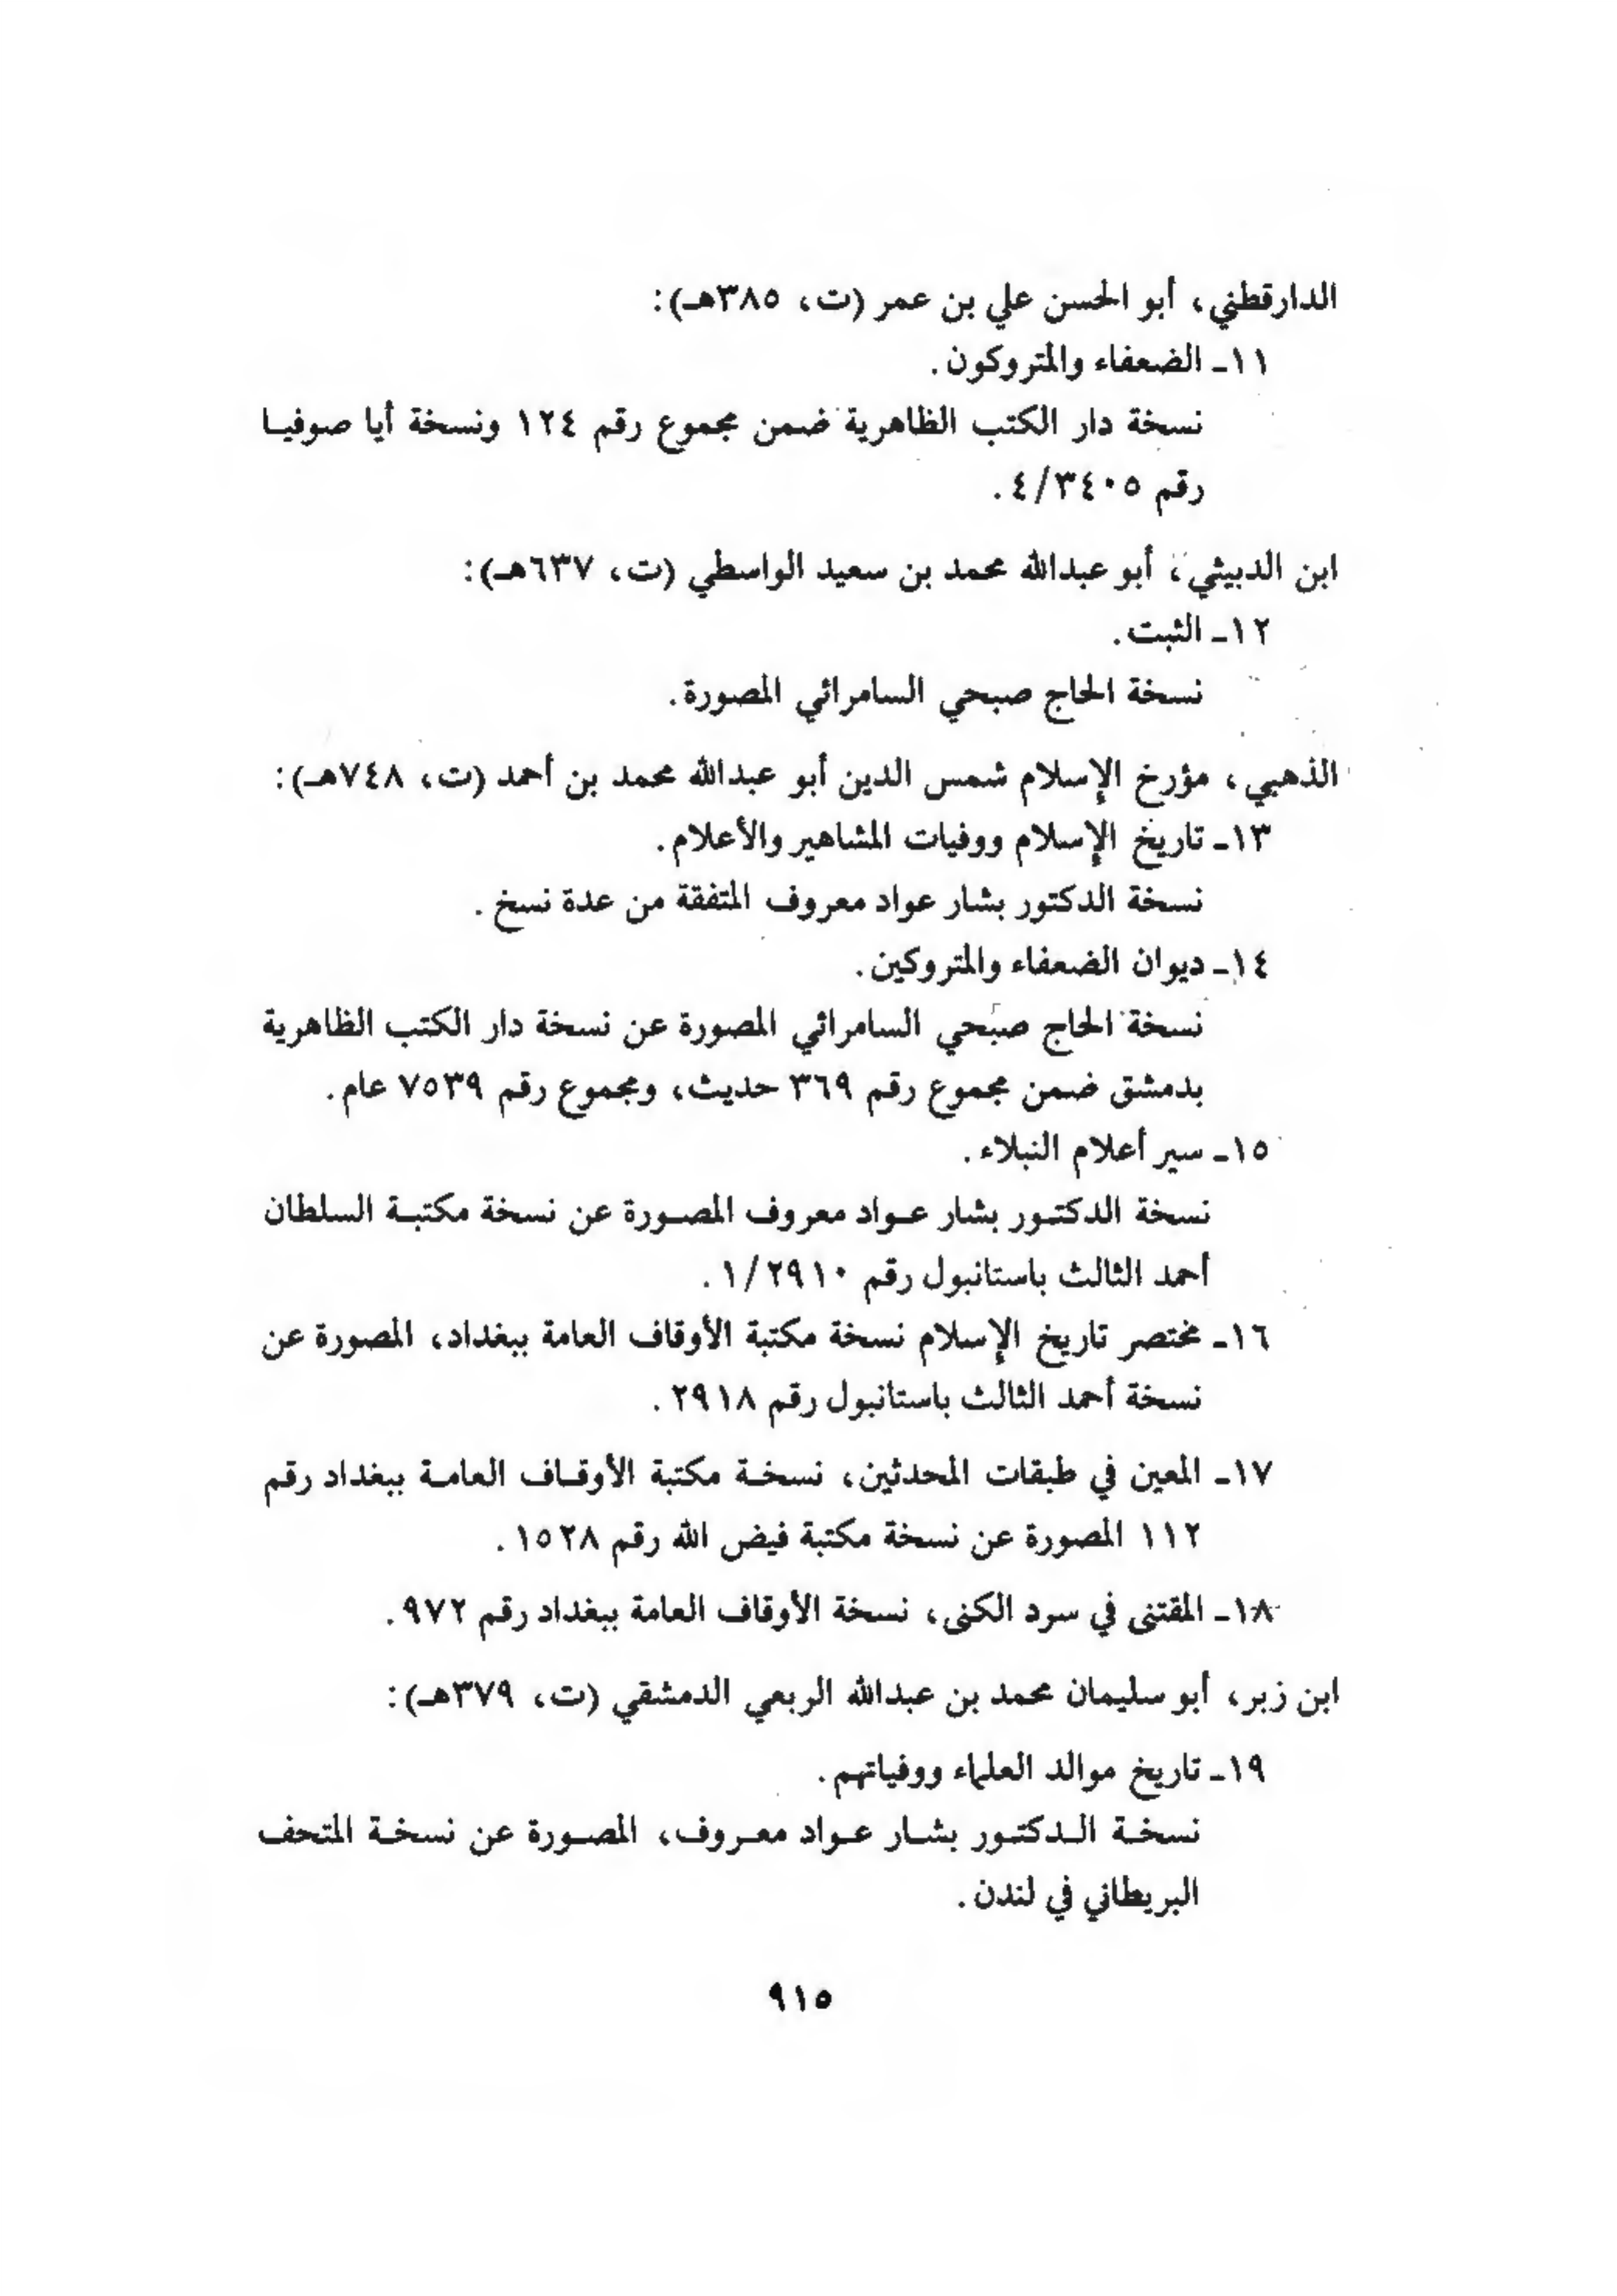 الدارقطني، أبو الحسن علي بن عمر (ت، ٣٨٥هـ):
١١ـ الضعفاء والمتروكون.
نسخة دار الكتب الظاهرية ضمن مجموع رقم ١٢٤ ونسخة أيا صوفيا
رقم ٤/٣٤٠٥.
ابن الدبيثي، أبو عبدالله محمد بن سعيد الواسطي (ت، ٦٣٧هـ):
١٢ـ الثبت.
نسخة الحاج صبحي السامرائي المصورة.
الذهبي، مؤرخ الإسلام شمس الدين أبو عبدالله محمد بن أحمد (ت، ٧٤٨هـ):
١٣ـ تاريخ الإسلام ووفيات المشاهير والأعلام.
نسخة الدكتور بشار عواد معروف المتفقة من عدة نسخ.
١٤ـ ديوان الضعفاء والمتروكين.
نسخة الحاج صبحي السامرائي المصورة عن نسخة دار الكتب الظاهرية
بدمشق ضمن مجموع رقم ٣٦٩ حديث، ومجموع رقم ٧٥٣٩ عام.
١٥ـ سير أعلام النبلاء.
نسخة الدكتور بشار عواد معروف المصورة عن نسخة مكتبة السلطان
أحمد الثالث باستانبول رقم ١/٢٩١٠.
١٦ـ مختصر تاريخ الإسلام نسخة مكتبة الأوقاف العامة ببغداد، المصورة عن
نسخة أحمد الثالث باستانبول رقم ٢٩١٨.
١٧ـ المعين في طبقات المحدثين، نسخة مكتبة الأوقاف العامة ببغداد رقم
١١٢ المصورة عن نسخة مكتبة فيض الله رقم ١٥٢٨.
١٨ـ المقتنى في سرد الكنى، نسخة الأوقاف العامة ببغداد رقم ٩٧٢.
ابن زبر، أبو سليمان محمد بن عبدالله الربعي الدمشقي (ت، ٣٧٩هـ):
١٩ـ تاريخ موالد العلماء ووفياتهم.
نسخة الدكتور بشار عواد معروف، المصورة عن نسخة المتحف
البريطاني في لندن.
٩١٥